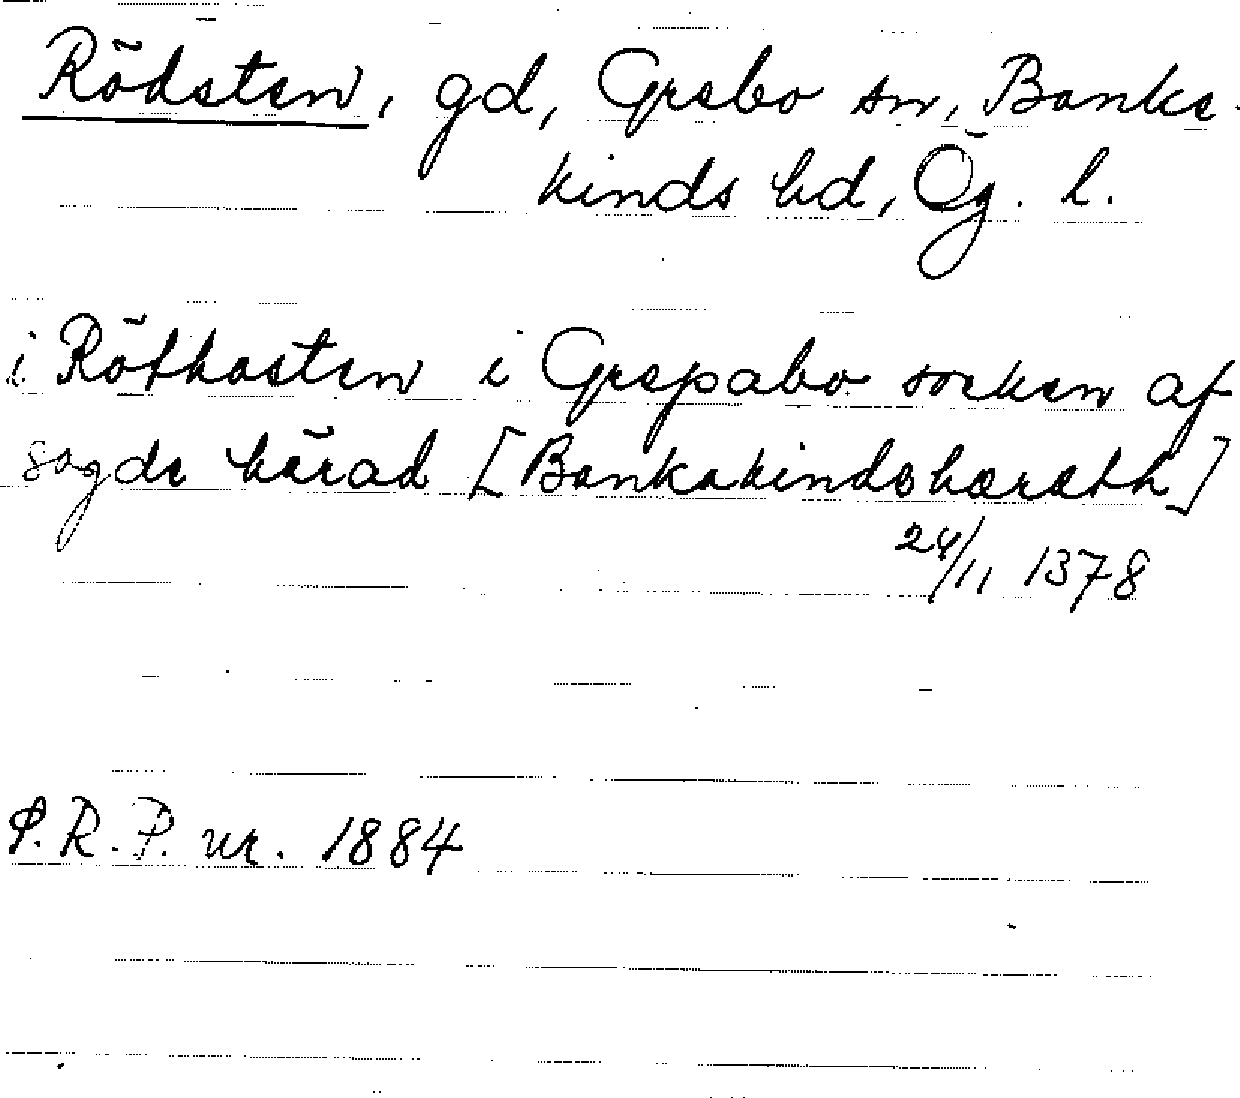 Rödsten, gd, Grebo sn, Banke-
kinds hd, Ög. l.
i Röthasten i Grepabo socken af
sagde härad [Bankakindshæræth]
24/11 1378
P.R.P. nr. 1884